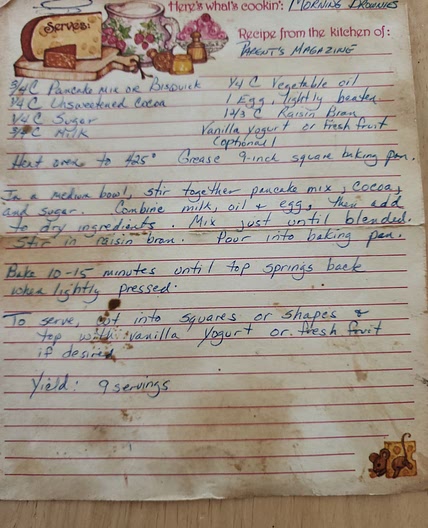 Here's what's cookin': Morning Brownies
Serves:
Recipe from the kitchen of:
Parent's Magazine
3/4 C Pancake mix or Bisquick 1/4 C Vegetable oil
1/4 C Unsweetened Cocoa 1 Egg, lightly beaten
1/4 C Sugar 1 2/3 C Raisin Bran
C Milk Vanilla Yogurt or fresh fruit
(optional)
Heat oven to 425° Grease 9-inch square baking pan.
In a medium bowl, stir together pancake mix, cocoa,
and sugar. Combine milk, oil & egg, then add
to dry ingredients. Mix just until blended.
Stir in raisin bran. Pour into baking pan.
Bake 10-15 minutes until top springs back
when lightly pressed.
To serve, cut into squares or shapes &
top with vanilla yogurt or fresh fruit
if desired
Yield: 9 servings